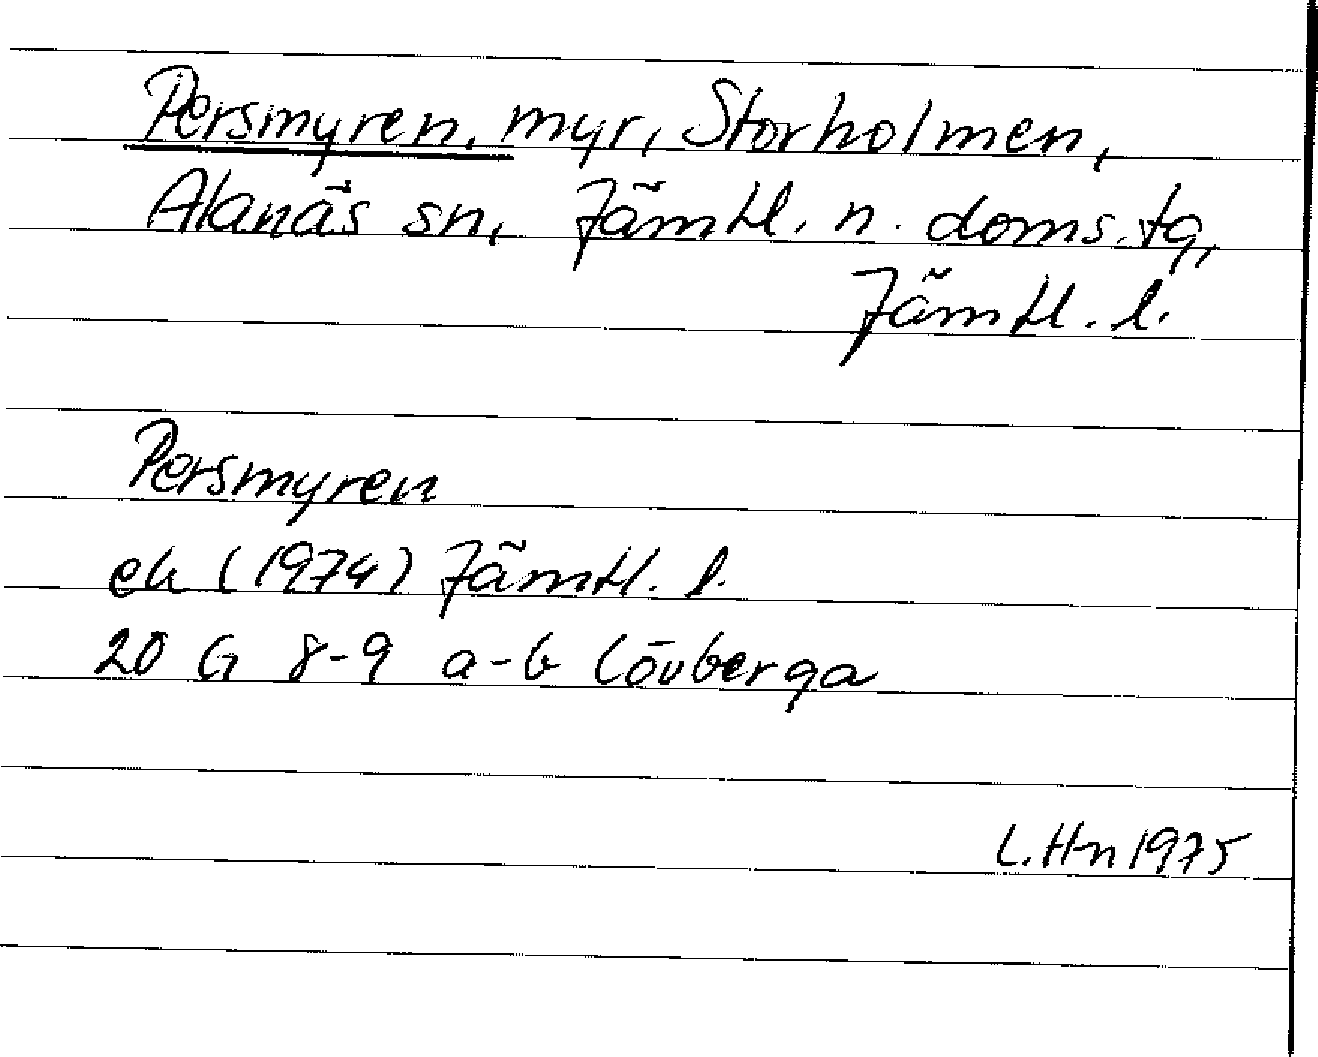 Persmyren, myr, Storholmen,
Alanäs sn, Jämtl. n. doms. tg,
Jämtl. l.
Persmyren
ek (1974) Jämtl. l.
20 G 8-9 a-b Lövberga
L. Hn 1975